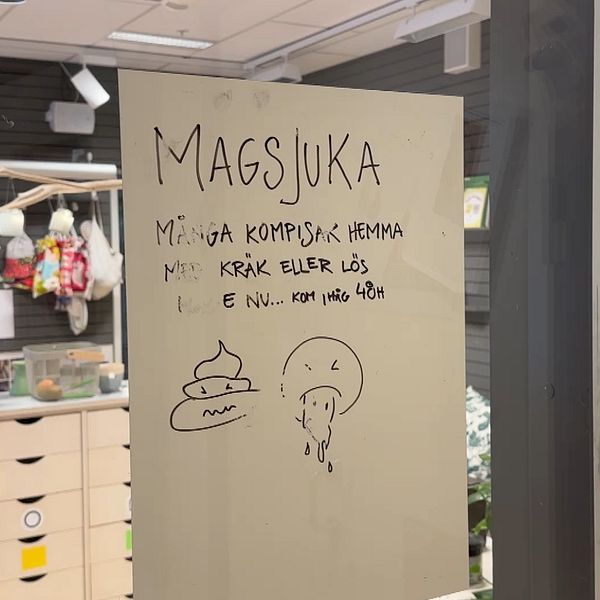 MAGSJUKA
MÅNGA KOMPISAR HEMMA
MED KRÄK ELLER LÖS
E NU... KOM IHÅG 48H